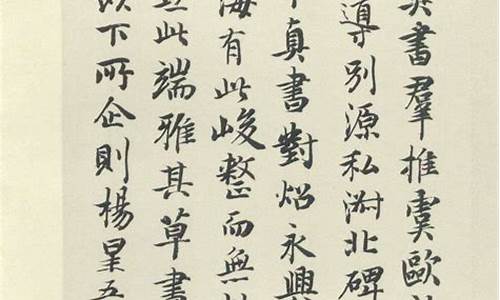 書羣推虞歐
導別源私淑北碑
真書對炤永興
海有此峻整而無
此端雅其草書
以下所企則楊星吾